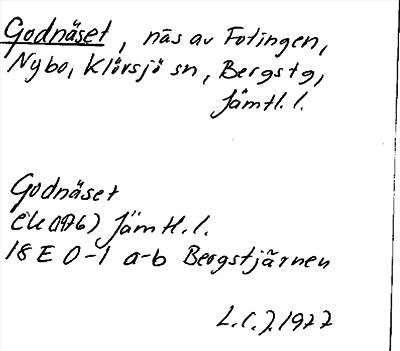 Godnäset, näs av Fotingen,
Nybo, Klövsjö sn, Bergs tg,
Jämtl. l.
Godnäset
Ek (1976) Jämtl. l.
18 E 0-1 a-b Bergstjärnen
L.C.J. 1977